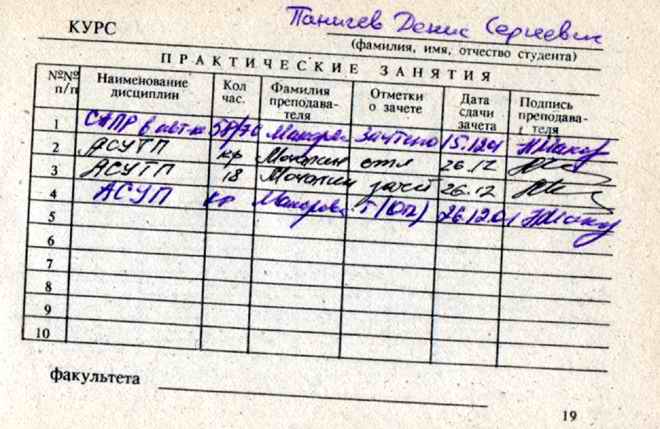 КУРС Паничев Денис Сергеевич
(фамилия, имя, отчество студента)
ПРАКТИЧЕСКИЕ ЗАНЯТИЯ
№№ п/п Наименование дисциплин Кол час. Фамилия преподава- теля Отметки о зачете Дата сдачи зачета Подпись преподава- теля
1 САПР в 58/70 Макаров зачтено 15.12.01
2 АСУТП кр отл 26.12
3 АСУТП 18 зачет 26.12
4 АСУП кр Макарова 5 (отл) 26.12.01
5
6
7
8
9
10
факультета
19